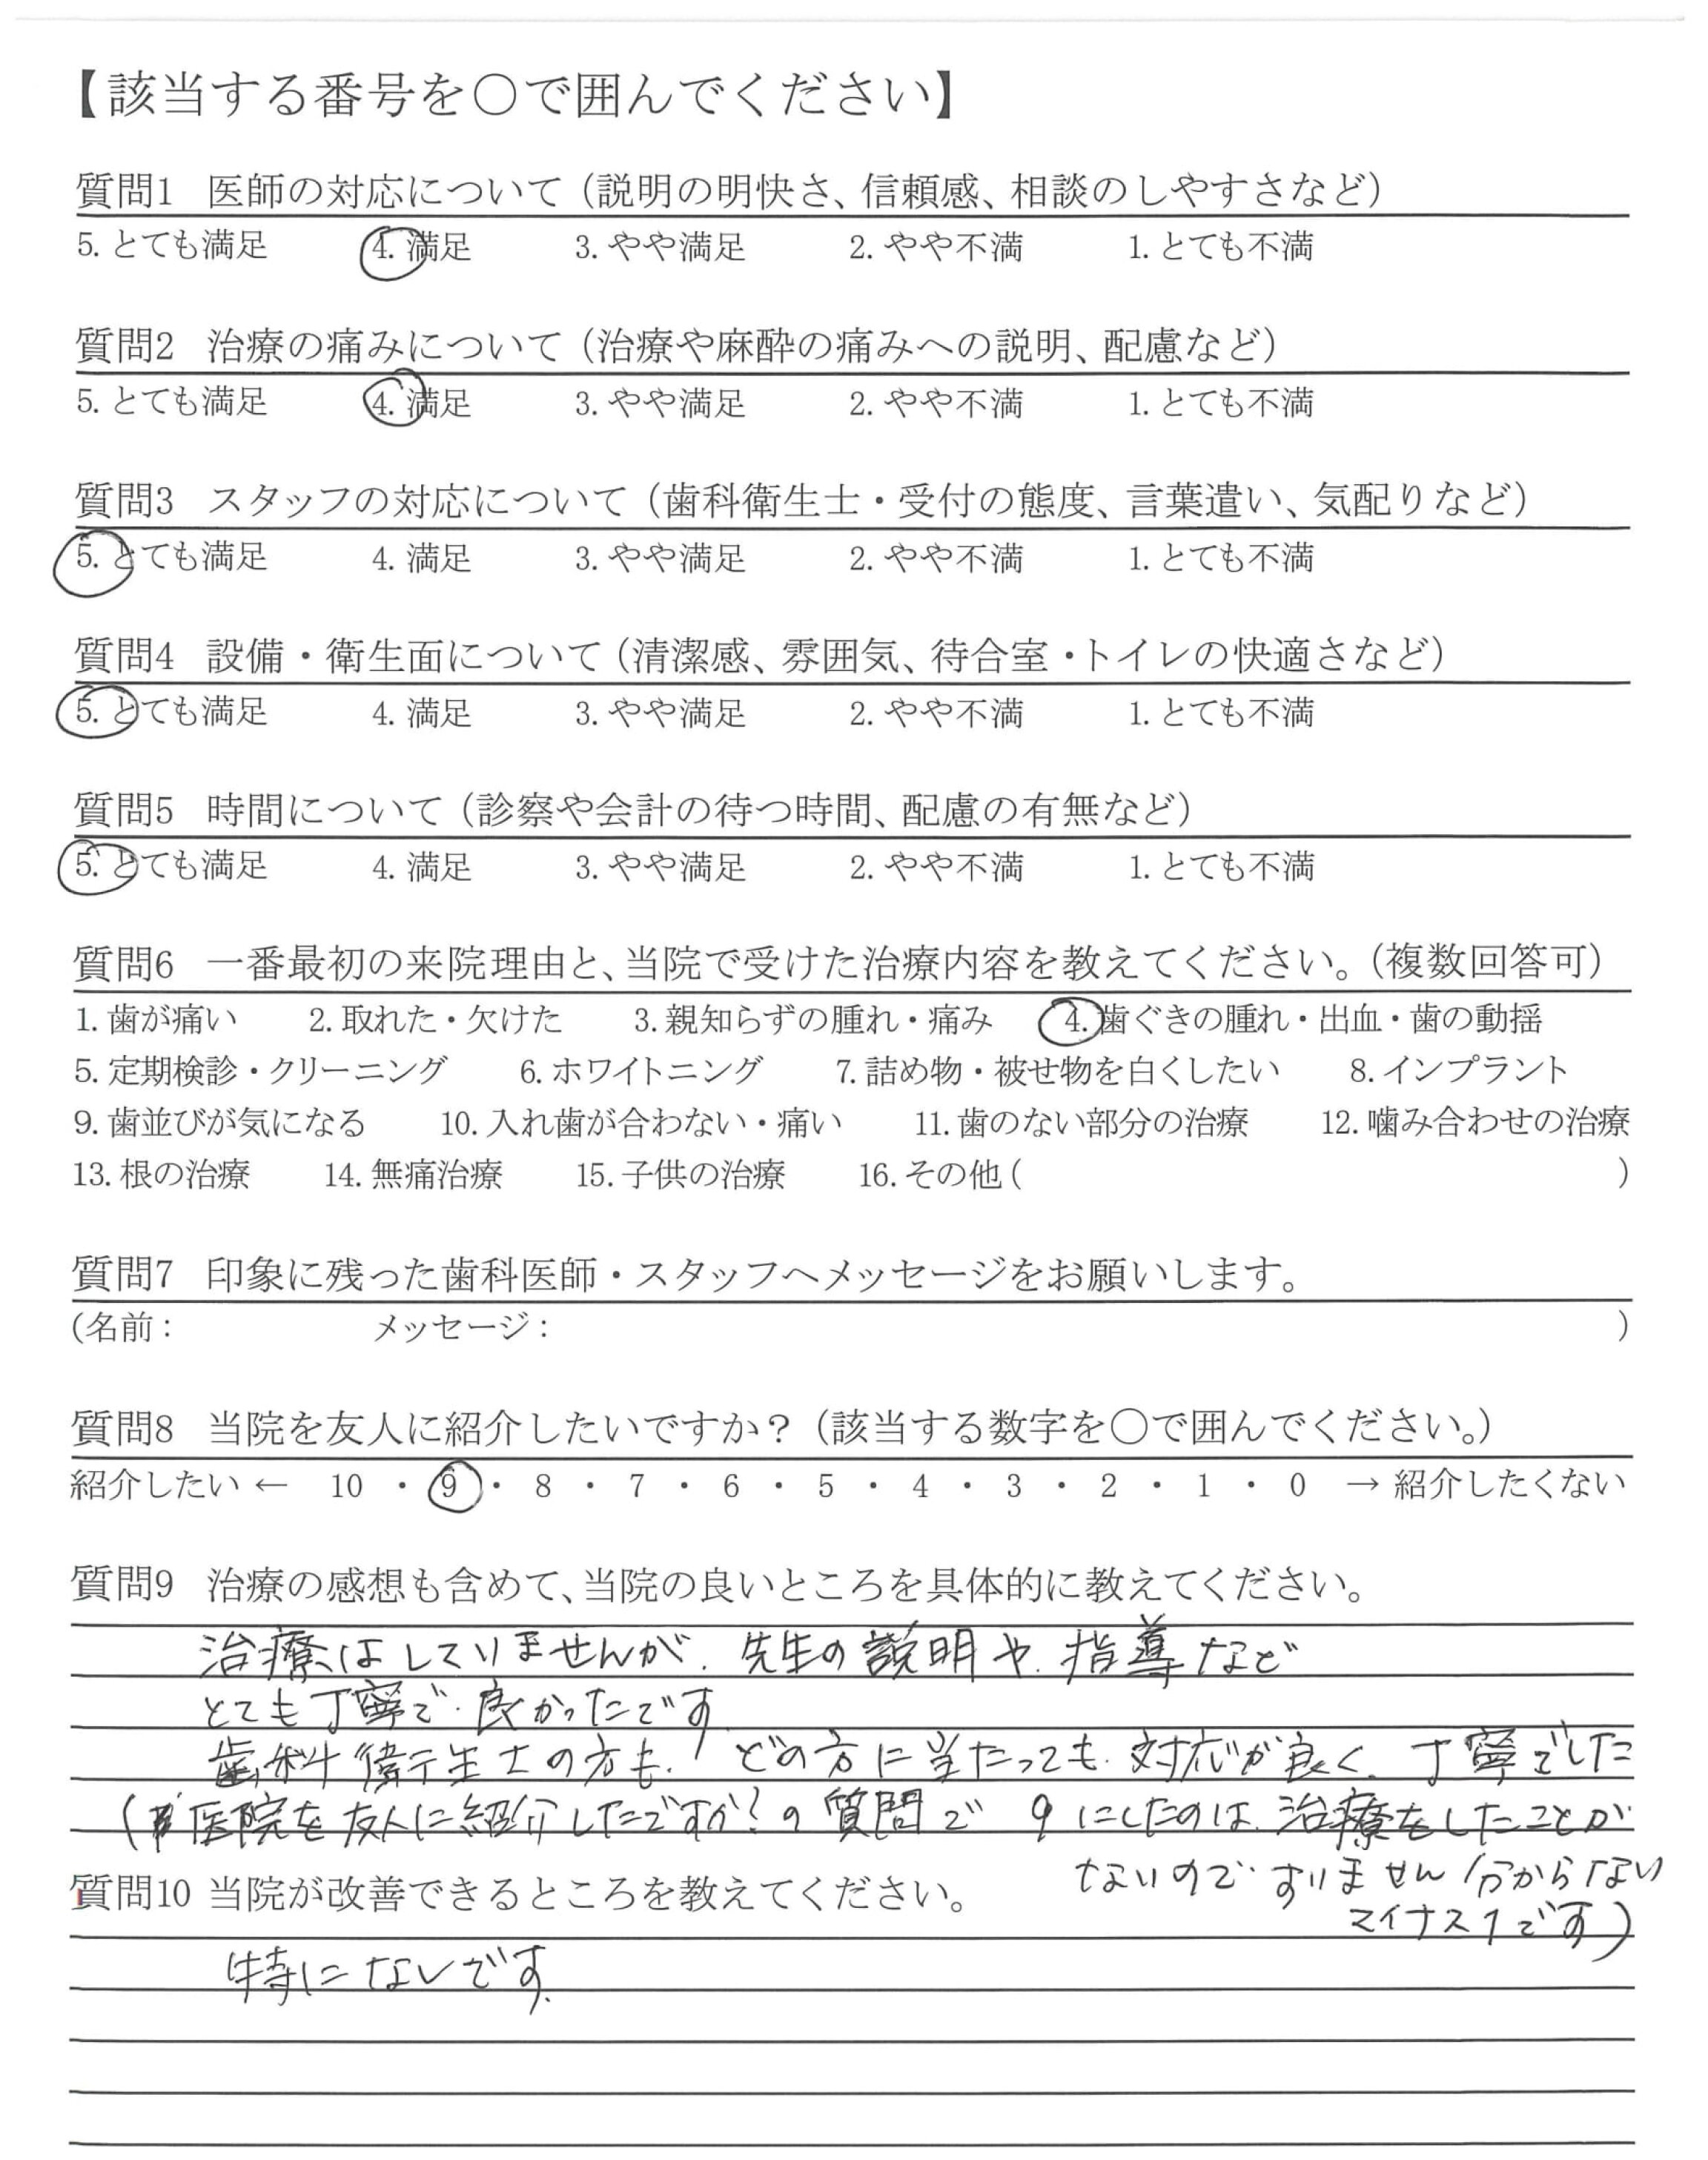 【該当する番号を○で囲んでください】
質問1 医師の対応について（説明の明快さ、信頼感、相談のしやすさなど）
5. とても満足 4. 満足 3. やや満足 2. やや不満 1. とても不満
質問2 治療の痛みについて（治療や麻酔の痛みへの説明、配慮など）
5. とても満足 4. 満足 3. やや満足 2. やや不満 1. とても不満
質問3 スタッフの対応について（歯科衛生士・受付の態度、言葉遣い、気配りなど）
5. とても満足 4. 満足 3. やや満足 2. やや不満 1. とても不満
質問4 設備・衛生面について（清潔感、雰囲気、待合室・トイレの快適さなど）
5. とても満足 4. 満足 3. やや満足 2. やや不満 1. とても不満
質問5 時間について（診察や会計の待つ時間、配慮の有無など）
5. とても満足 4. 満足 3. やや満足 2. やや不満 1. とても不満
質問6 一番最初の来院理由と、当院で受けた治療内容を教えてください。（複数回答可）
1. 歯が痛い 2. 取れた・欠けた 3. 親知らずの腫れ・痛み 4. 歯ぐきの腫れ・出血・歯の動揺
5. 定期検診・クリーニング 6. ホワイトニング 7. 詰め物・被せ物を白くしたい 8. インプラント
9. 歯並びが気になる 10. 入れ歯が合わない・痛い 11. 歯のない部分の治療 12. 噛み合わせの治療
13. 根の治療 14. 無痛治療 15. 子供の治療 16. その他（ ）
質問7 印象に残った歯科医師・スタッフへメッセージをお願いします。
（名前： メッセージ： ）
質問8 当院を友人に紹介したいですか？（該当する数字を○で囲んでください。）
紹介したい ← 10 ・ 9 ・ 8 ・ 7 ・ 6 ・ 5 ・ 4 ・ 3 ・ 2 ・ 1 ・ 0 → 紹介したくない
質問9 治療の感想も含めて、当院の良いところを具体的に教えてください。
治療はしていませんが、先生の説明や、指導など
とても丁寧で、良かったです
歯科衛生士の方も、どの方に当たっても、対応が良く、丁寧でした
（医院を友人に紹介したですか？の質問で 9にしたのは、治療をしたことが
ないので、すいません分からない
マイナス1です）
質問10 当院が改善できるところを教えてください。
特にないです。